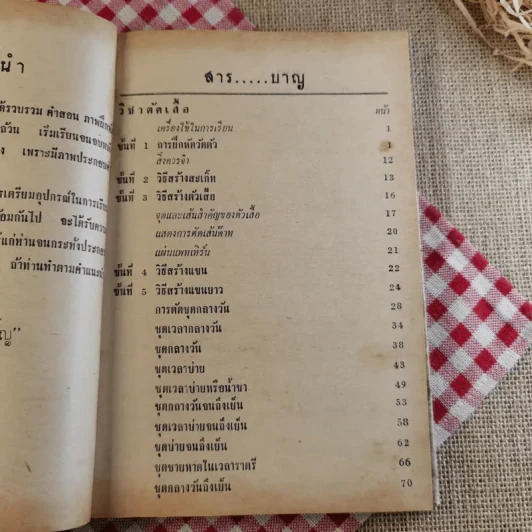 นำ
ได้รวบรวม คำสอน ภาพฝึกหัด
ถ้วน เริ่มเรียนจนจบหลัก
ง เพราะมีภาพประกอบคำ
ารเตรียมอุปกรณ์ในการเรียน
ร้อมกันไป จะได้รับความ
แก่ท่านจนกระทั่งประกอบ
ถ้าท่านทำตามคำแนะนำ
สาร.....บาญ
วิชาตัดเสื้อ หน้า
เครื่องใช้ในการเรียน 1
ขั้นที่ 1 การฝึกหัดวัดตัว 1
สิ่งควรจำ 12
ขั้นที่ 2 วิธีสร้างสะเก็ท 13
ขั้นที่ 3 วิธีสร้างตัวเสื้อ 16
จุดและเส้นสำคัญของตัวเสื้อ 17
แสดงการตัดเส้นด๊าท 20
แผ่นแพทเทิร์น 21
ขั้นที่ 4 วิธีสร้างแขน 22
ขั้นที่ 5 วิธีสร้างแขนยาว 24
การตัดชุดกลางวัน 28
ชุดเวลากลางวัน 34
ชุดกลางวัน 38
ชุดเวลาบ่าย 43
ชุดเวลาบ่ายหรือน้ำชา 49
ชุดกลางวันจนถึงเย็น 53
ชุดเวลาบ่ายจนถึงเย็น 58
ชุดบ่ายจนถึงเย็น 62
ชุดชายหาดในเวลาราตรี 66
ชุดกลางวันถึงเย็น 70